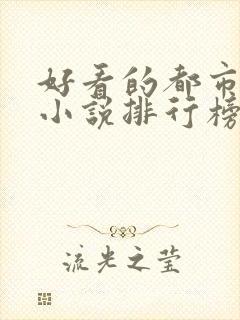 好看的都市
小说排行榜
流光之莹